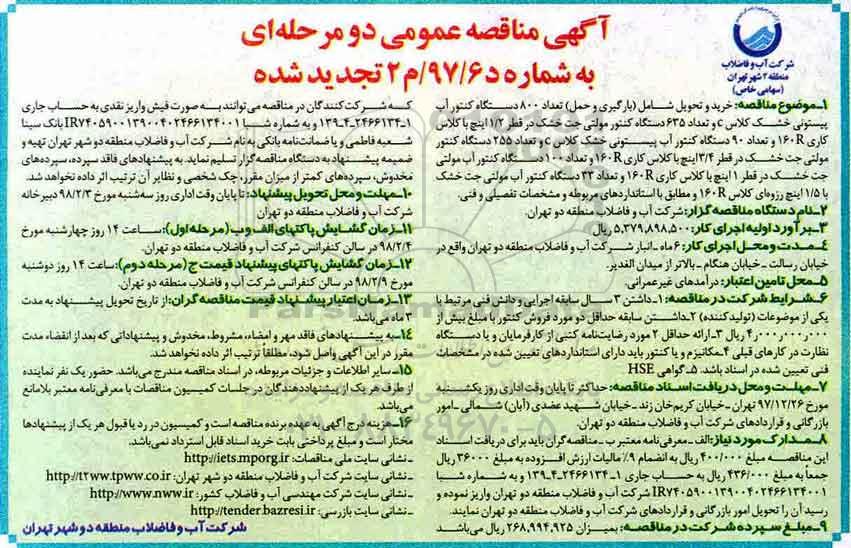 آگهی مناقصه عمومی دو مرحله‌ای
به شماره د۹۷/۶/م۲ تجدید شده
شرکت آب و فاضلاب
منطقه ۲ شهر تهران
(سهامی خاص)
۱ـ موضوع مناقصه: خرید و تحویل شامل (بارگیری و حمل) تعداد ۸۰۰ دستگاه کنتور آب
پیستونی خشک کلاس c و تعداد ۶۳۵ دستگاه کنتور مولتی جت خشک در قطر ۱/۲ اینچ با کلاس
کاری ۱۶۰R و تعداد ۹۰ دستگاه کنتور آب پیستونی خشک کلاس c و تعداد ۲۵۵ دستگاه کنتور
مولتی جت خشک در قطر ۳/۴ اینچ با کلاس کاری ۱۶۰R و تعداد ۱۰۰ دستگاه کنتور آب مولتی
جت خشک در قطر ۱ اینچ با کلاس کاری ۱۶۰R و تعداد ۳۳ دستگاه کنتور آب مولتی جت خشک
با ۱/۵ اینچ رزوه‌ای کلاس ۱۶۰R و مطابق با استانداردهای مربوطه و مشخصات تفصیلی و فنی.
۲ـ نام دستگاه مناقصه گزار: شرکت آب و فاضلاب منطقه دو تهران.
۳ـ برآورد اولیه اجرای کار: ۵,۳۷۹,۸۹۸,۵۰۰ ریال.
۴ـ مدت و محل اجرای کار: ۶ ماه ـ انبار شرکت آب و فاضلاب منطقه دو تهران واقع در
خیابان رسالت ـ خیابان هنگام ـ بالاتر از میدان الغدیر.
۵ـ محل تامین اعتبار: درآمدهای غیرعمرانی.
۶ـ شرایط شرکت در مناقصه: ۱ـ داشتن ۳ سال سابقه اجرایی و دانش فنی مرتبط با
یکی از موضوعات (تولیدکننده) ۲ـ داشتن سابقه حداقل دو مورد فروش کنتور با مبلغ بیش از
۴,۰۰۰,۰۰۰,۰۰۰ ریال ۳ـ ارائه حداقل ۲ مورد رضایت‌نامه کتبی از کارفرمایان و یا دستگاه
نظارت در کارهای قبلی ۴ـ مکانیزم و یا کنتور باید دارای استانداردهای تعیین شده در مشخصات
فنی تعیین شده در اسناد باشد. ۵ـ گواهی HSE
۷ـ مهلت و محل دریافت اسناد مناقصه: حداکثر تا پایان وقت اداری روز یکشنبه
مورخ ۹۷/۱۲/۲۶ تهران ـ خیابان کریم‌خان زند ـ خیابان شهید عضدی (آبان) شمالی ـ امور
بازرگانی و قراردادهای شرکت آب و فاضلاب منطقه دو تهران.
۸ـ مدارک مورد نیاز: الف ـ معرفی‌نامه معتبر ب ـ مناقصه‌گران باید برای دریافت اسناد
این مناقصه مبلغ ۴۰۰/۰۰۰ ریال به انضمام ۹٪ مالیات ارزش افزوده به مبلغ ۳۶۰۰۰ ریال
جمعاً به مبلغ ۴۳۶/۰۰۰ ریال به حساب جاری ۱ـ۲۴۶۶۱۳۴ـ۴ـ۱۳۹ و به شماره شبا
IR۷۴۰۵۹۰۰۱۳۹۰۰۴۰۲۴۶۶۱۳۴۰۰۱ شرکت آب و فاضلاب منطقه دو تهران واریز نموده و
رسید آن را تحویل امور بازرگانی و قراردادهای شرکت آب و فاضلاب منطقه دو تهران نمایند.
۹ـ مبلغ سپرده شرکت در مناقصه: بمیزان ۲۶۸,۹۹۴,۹۲۵ ریال می‌باشد
که شرکت کنندگان در مناقصه می‌توانند به صورت فیش واریز نقدی به حساب جاری
۱ـ۲۴۶۶۱۳۴ـ۴ـ۱۳۹ و به شماره شبا IR۷۴۰۵۹۰۰۱۳۹۰۰۴۰۲۴۶۶۱۳۴۰۰۱ بانک سینا
شعبه فاطمی و یا ضمانت‌نامه بانکی به نام شرکت آب و فاضلاب منطقه دو شهر تهران تهیه و
ضمیمه پیشنهاد به دستگاه مناقصه‌گزار تسلیم نماید. به پیشنهادهای فاقد سپرده، سپرده‌های
مخدوش، سپرده‌های کمتر از میزان مقرر، چک شخصی و نظایر آن ترتیب اثر داده نخواهد شد.
۱۰ـ مهلت و محل تحویل پیشنهاد: تا پایان وقت اداری روز سه‌شنبه مورخ ۹۸/۲/۳ دبیرخانه
شرکت آب و فاضلاب منطقه دو تهران
۱۱ـ زمان گشایش پاکتهای الف و ب (مرحله اول): ساعت ۱۴ روز چهارشنبه مورخ
۹۸/۲/۴ در سالن کنفرانس شرکت آب و فاضلاب منطقه دو تهران.
۱۲ـ زمان گشایش پاکتهای پیشنهاد قیمت ج (مرحله دوم): ساعت ۱۴ روز دوشنبه
مورخ ۹۸/۲/۹ در سالن کنفرانس شرکت آب و فاضلاب منطقه دو تهران.
۱۳ـ زمان اعتبار پیشنهاد قیمت مناقصه گران: از تاریخ تحویل پیشنهاد به مدت
۳ ماه می‌باشد.
۱۴ـ به پیشنهادهای فاقد مهر و امضاء، مشروط، مخدوش و پیشنهاداتی که بعد از انقضاء مدت
مقرر در این آگهی واصل شود، مطلقاً ترتیب اثر داده نخواهد شد.
۱۵ـ سایر اطلاعات و جزئیات مربوطه، در اسناد مناقصه مندرج می‌باشد. حضور یک نفر نماینده
از طرف هر یک از پیشنهاددهندگان در جلسات کمیسیون مناقصات با معرفی‌نامه معتبر بلامانع
می‌باشد.
۱۶ـ هزینه درج آگهی به عهده برنده مناقصه است و کمیسیون در رد یا قبول هر یک از پیشنهادها
مختار است و مبلغ پرداختی بابت خرید اسناد قابل استرداد نمی‌باشد.
ـ نشانی سایت ملی مناقصات: http://iets.mporg.ir
ـ نشانی سایت شرکت آب و فاضلاب منطقه دو شهر تهران: http://t2www.tpww.co.ir
ـ نشانی سایت شرکت مهندسی آب و فاضلاب کشور: http://www.nww.ir
ـ نشانی سایت بازرسی: http://tender.bazresi.ir
شرکت آب و فاضلاب منطقه دو شهر تهران